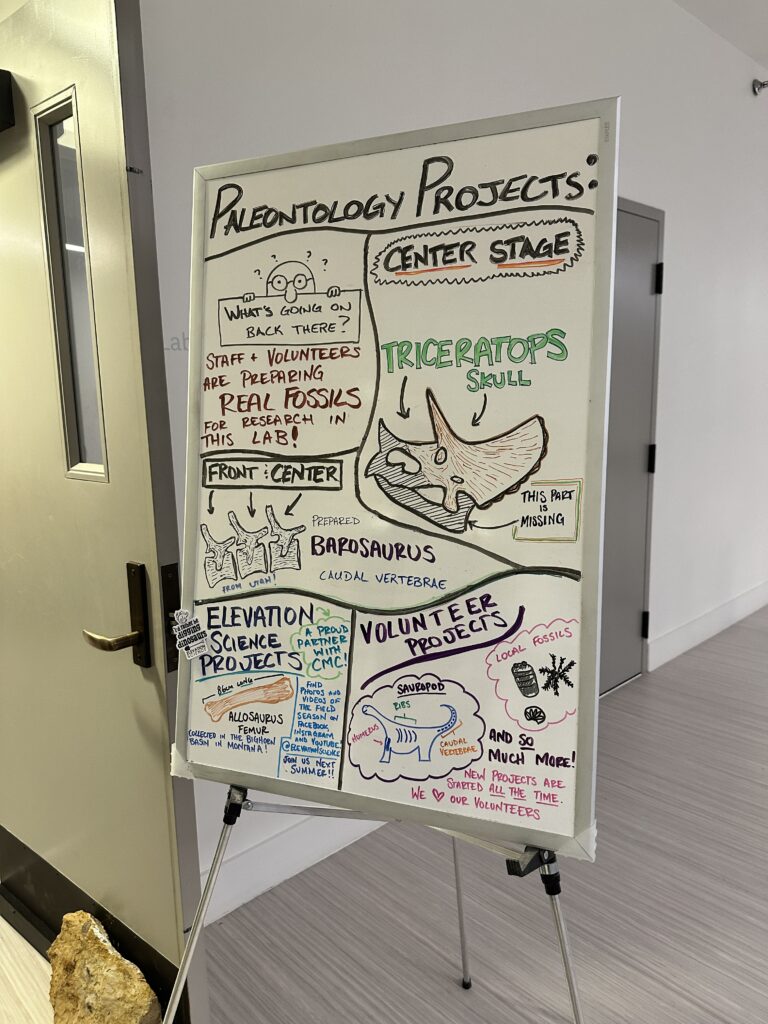 PALEONTOLOGY PROJECTS:
? ? ? ?
WHAT'S GOING ON
BACK THERE?
STAFF + VOLUNTEERS
ARE PREPARING
REAL FOSSILS
FOR RESEARCH IN
THIS LAB!
CENTER STAGE
TRICERATOPS
SKULL
THIS PART
IS
MISSING
FRONT : CENTER
PREPARED
BAROSAURUS
CAUDAL VERTEBRAE
FROM UTAH!
ELEVATION
SCIENCE
PROJECTS
A PROUD
PARTNER
WITH
CMC!
86CM LONG
ALLOSAURUS
FEMUR
COLLECTED IN THE BIGHORN
BASIN IN MONTANA!
FIND
PHOTOS AND
VIDEOS OF
THE FIELD
SEASON ON
FACEBOOK,
INSTAGRAM
AND YOUTUBE
@ELEVATIONSCIENCE
JOIN US NEXT
SUMMER!!
VOLUNTEER
PROJECTS
SAUROPOD
RIBS
HUMERUS
CAUDAL
VERTEBRAE
LOCAL FOSSILS
AND SO
MUCH MORE!
NEW PROJECTS ARE
STARTED ALL THE TIME.
WE ♡ OUR VOLUNTEERS
Lab